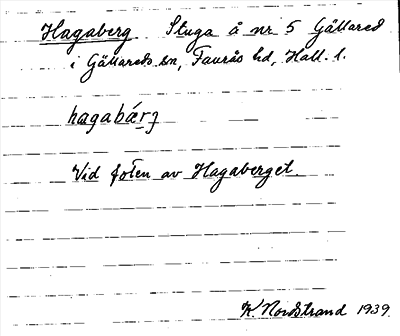 Hagaberg. Stuga å nr 5 Gällared
i Gällareds sn, Faurås hd, Hall. l.
hagabærj
Vid foten av Hagaberget.
K Nordstrand 1939.